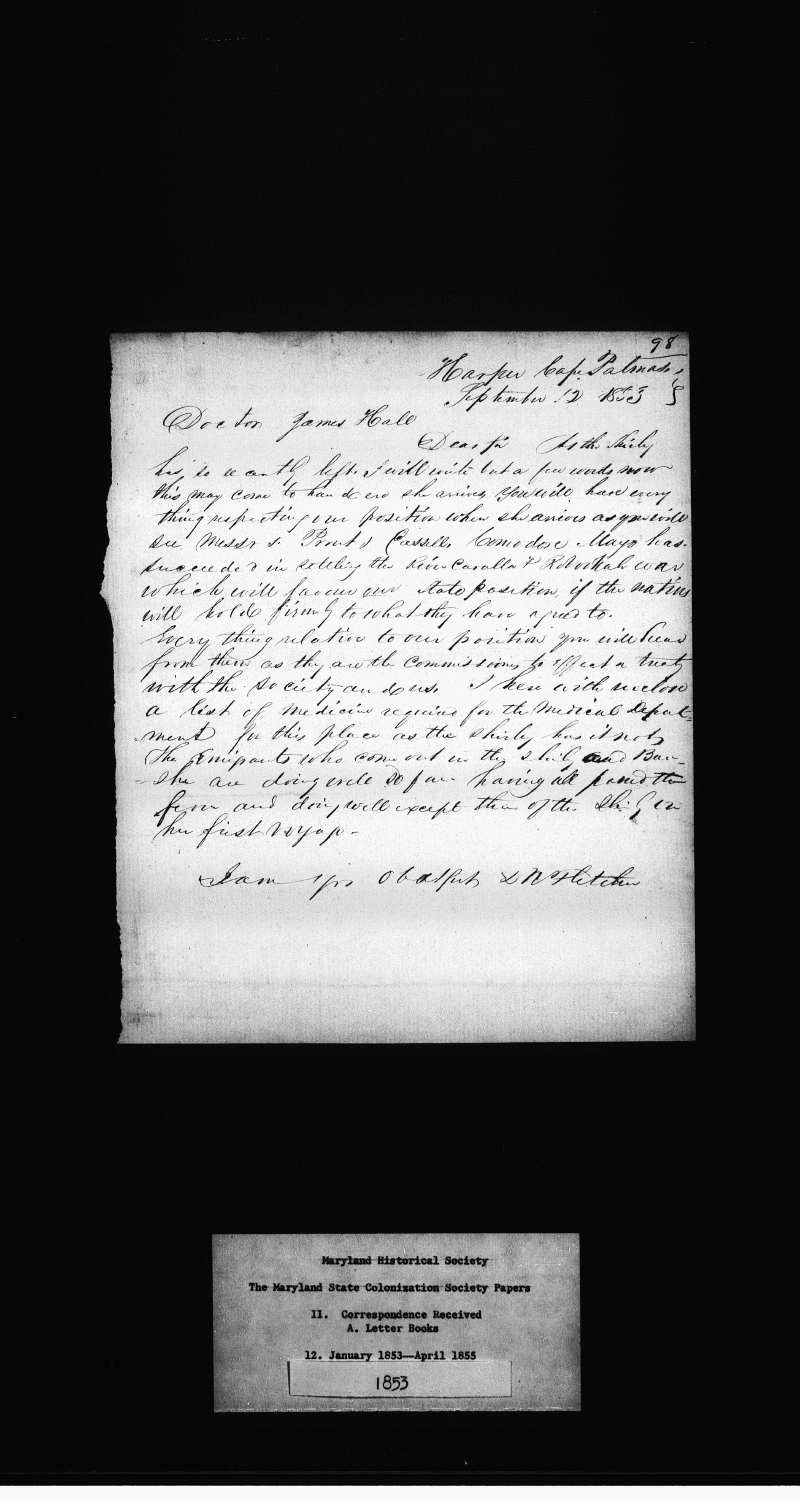 98
Harper Cape Palmas
September 12 1853
Doctor James Hall
Dear Sir As the Shirly
has so recently left I will write but a few words now
this may come to hand ere she arrives you will have every
thing respecting our position when she arrives as you will
see Messrs. Prout & Cassells Comodore Mayo has
succeeded in settling the River Cavalla & war
which will favour our State position, if the natives
will hold firmly to what they have agreed to.
Every thing relative to our position you will hear
from them as they are the commissioners to effect a treaty
with the Society and us. I here with inclose
a list of medicine required for the Medical Depart=
ment for this place as the Shirly has it not
The Emigrants who come out in the Shirly and Ban-
-she are doing well so far having all passed the
fever and doing well except those of the Shirly on
her first voyage-
I am yrs Obdt
Maryland Historical Society
The Maryland State Colonization Society Papers
II. Correspondence Received
A. Letter Books
12. January 1853--April 1855
1853